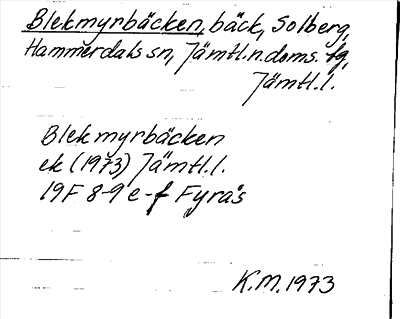 Blekmyrbäcken, bäck, Solberg,
Hammerdals sn, Jämtl.n.doms. tg,
Jämtl.l.
Blekmyrbäcken
ek (1973) Jämtl.l.
19F 8-9 e-f Fyrås
K.M.1973